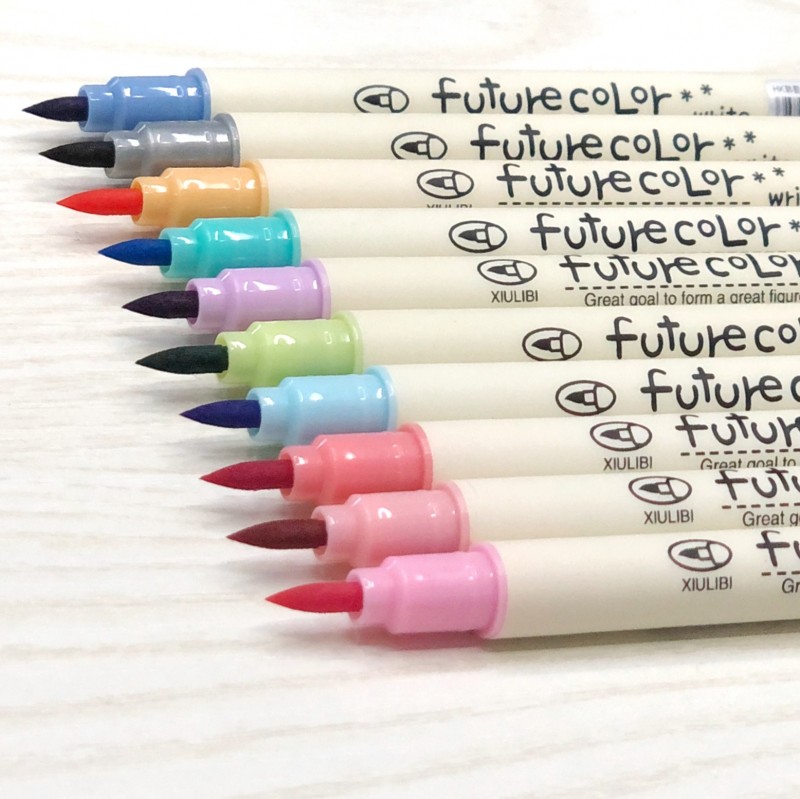 futurecoLor**
write
futurecoLor**
futurecoLor**
XIULIBI
wri
futurecoLor*
futurecoLor
XIULIBI
Great goal to form a great figur
futureco
futurec
futur
XIULIBI
Great goal to
futu
XIULIBI
Great g
fu
XIULIBI
Gr